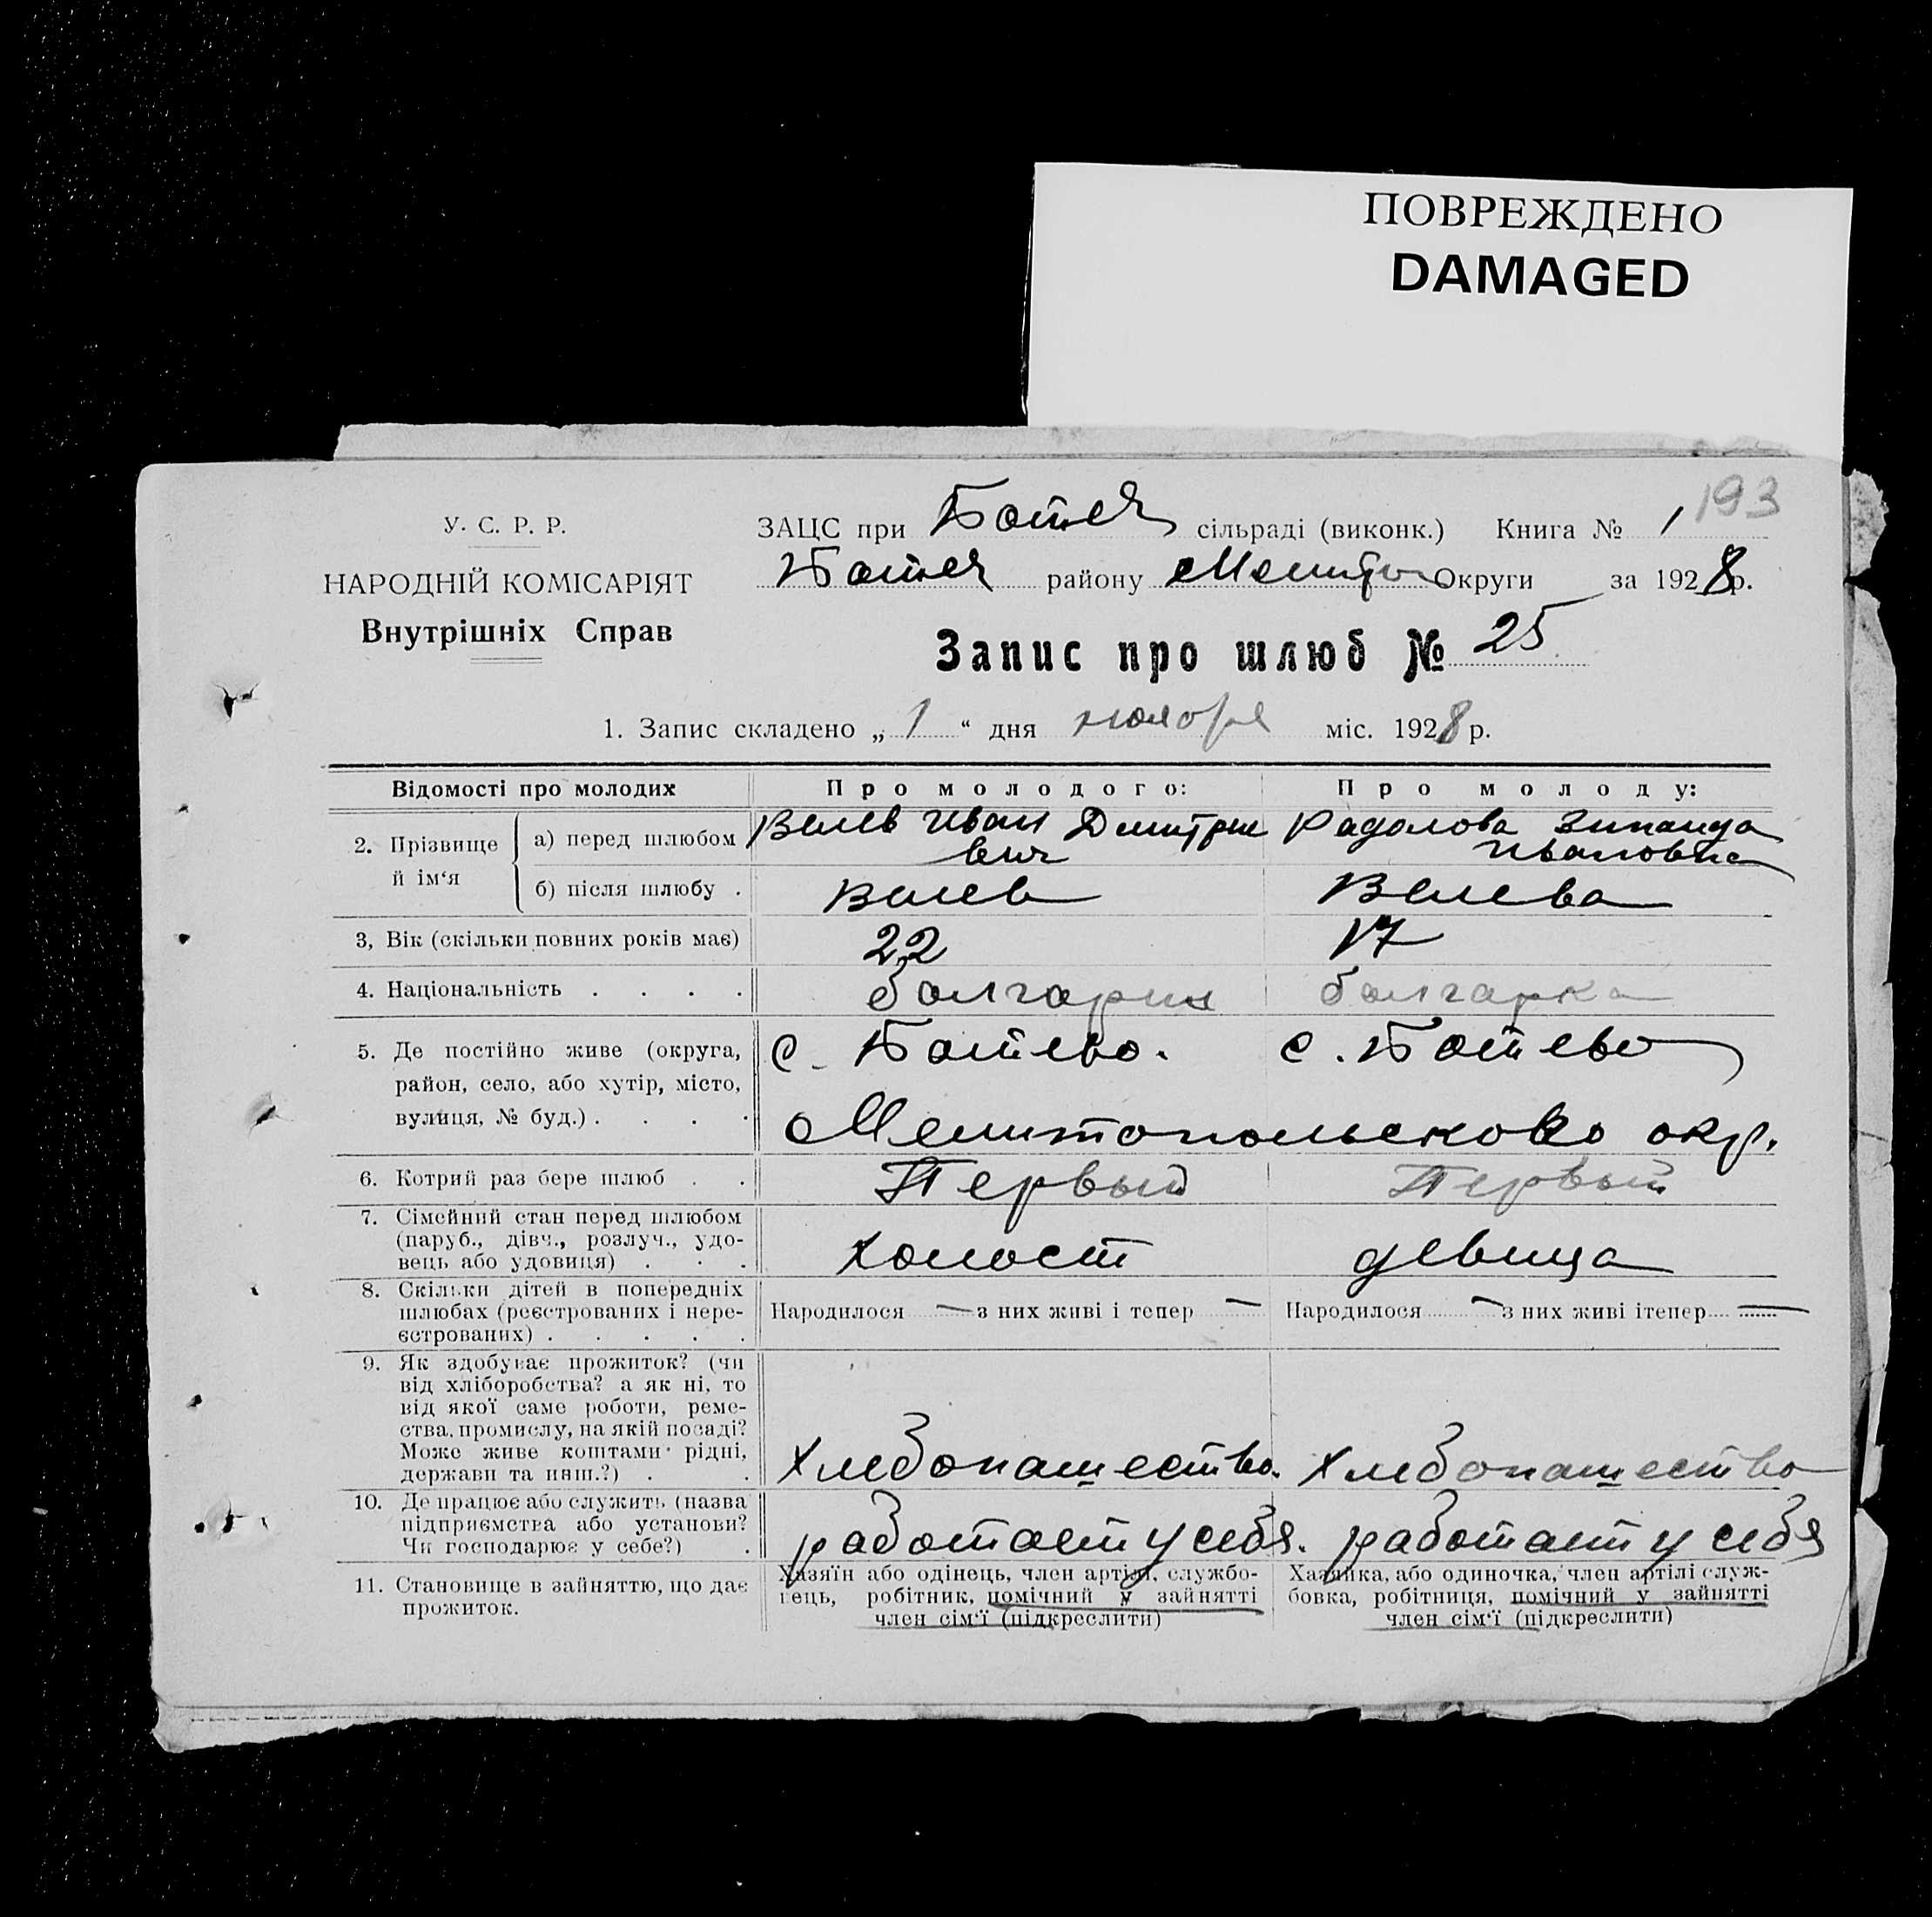 ПОВРЕЖДЕНО
DAMAGED
193
У. С. Р. Р.
НАРОДНІЙ КОМІСАРІЯТ
Внутрішніх Справ
ЗАЦС при Ботев сільраді (виконк.) Книга № 1
Ботев району Мелитоп Округи за 1928 р.
Запис про шлюб № 25
1. Запис складено „ 1 “ дня ноября міс. 1928 р.
Відомості про молодих Про молодого: Про молоду:
2. Прізвище й ім‘я
а) перед шлюбом Велев Иван Дмитрие Радолова Зинаида
вич Ивановна
б) після шлюбу . Велев Велева
3, Вік (скільки повних років має) 22 17
4. Національність . . . . болгарин болгарка
5. Де постійно живе (округа, с. Ботево. с. Ботево
район, село, або хутір, місто,
вулиця, № буд.) . . . . Мелитопольсково окр.
6. Котрий раз бере шлюб . . Первый Первый
7. Сімейний стан перед шлюбом
(паруб., дівч., розлуч., удо-
вець або удовиця) . . . холост девица
8. Скільки дітей в попередніх
шлюбах (реєстрованих і нере- Народилося — з них живі і тепер — Народилося — з них живі ітепер —
єстрованих) . . . . .
9. Як здобуває прожиток? (чи
від хліборобства? а як ні, то
від якої саме роботи, реме-
ства, промислу, на якій посаді?
Може живе коштами рідні,
держави та инш.?) . . Хлебопашество. Хлебопашество
10. Де працює або служить (назва
підприємства або установи?
Чи господарює у себе?) . работает у себя. работает у себя
11. Становище в зайняттю, що дає
прожиток.
Хазяїн або одінець, член артілі, службо-
вець, робітник, помічний у зайнятті
член сім‘ї (підкреслити)
Хазяйка, або одиночка, член артілі служ-
бовка, робітниця, помічний у зайнятті
член сім‘ї (підкреслити)